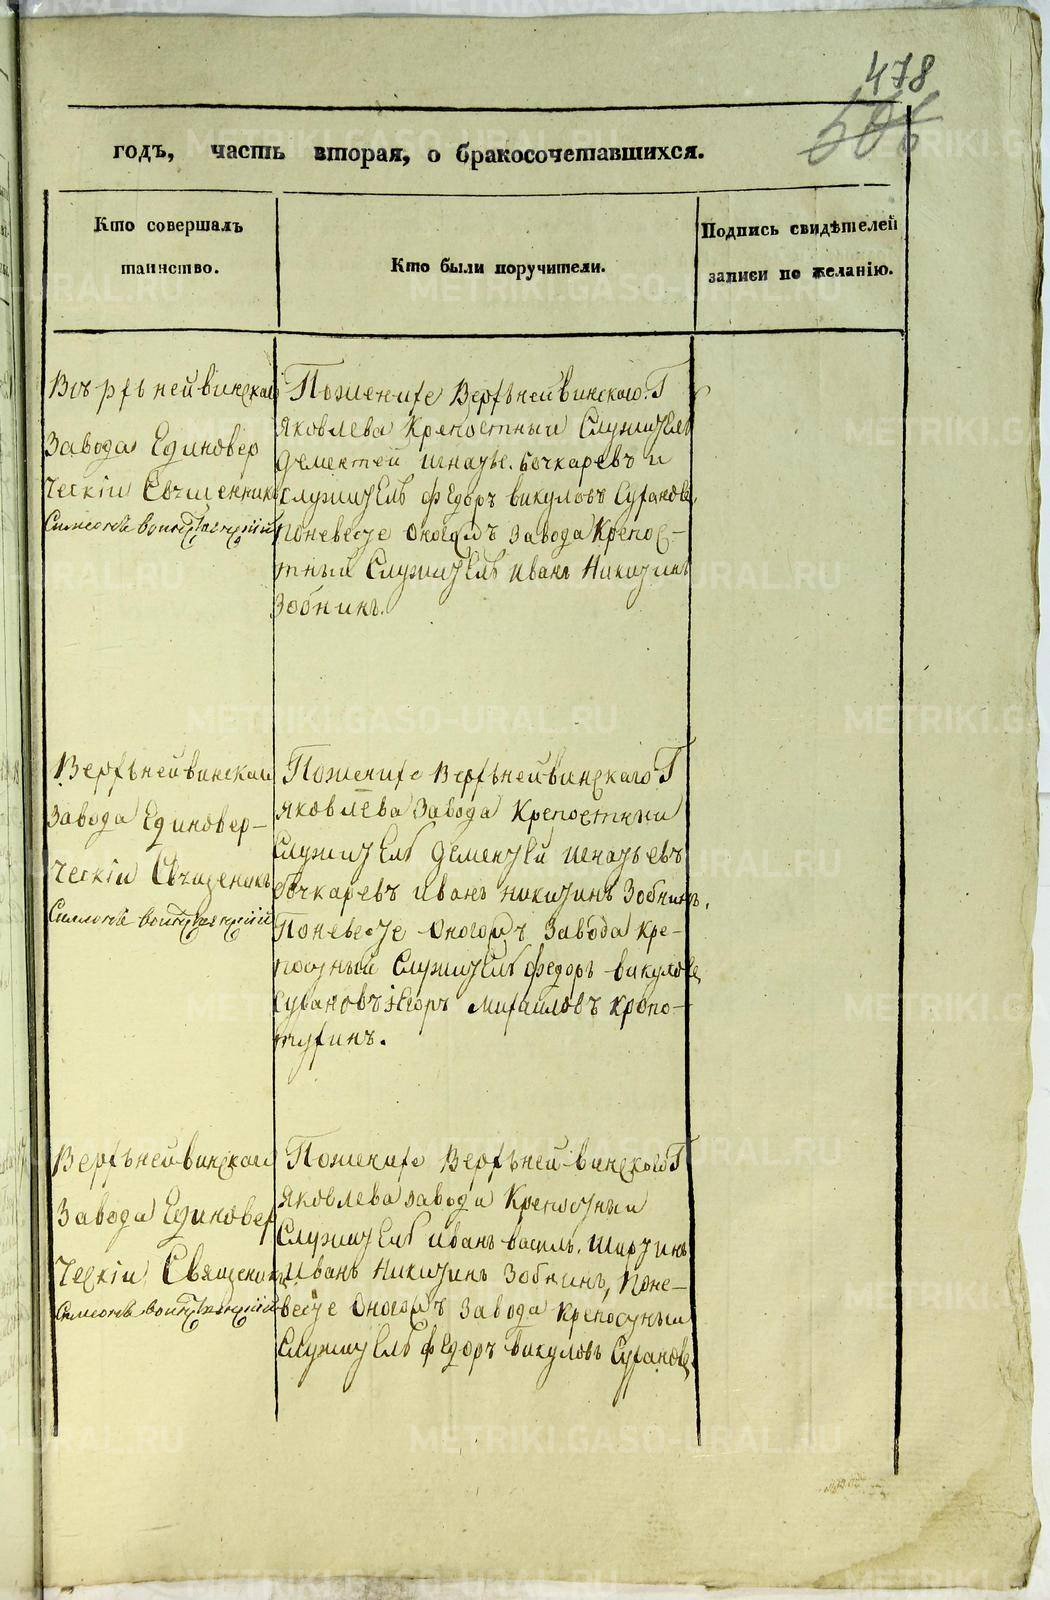 478
годъ, часть вторая, о бракосочетавшихся.
Кто совершалъ
таинство.
Кто были поручители.
Подпись свидѣтелей
записи по желанію.
Завода Единовер
ческіи Свчщенникъ
Симеонъ
Пожених Верхънейвинскаго Г
яковлева Крепостныи Служитель
Дементей игнатье. бочкаревъ и
служитель федоръ викуловъ Сухановъ
поневесте оногожъ завода Крепос-
тныи Служитель иванъ Никитинъ
Зобнинъ.
Верхънейвинскаи
Завода Единовер-
ческіи Свчщеникъ
Симеонъ
Пожених Верхънейвинскаго Г
яковлева Завода Крепостныи
Служитель Дементеи игнатьевъ
бочкаревъ иванъ никитинъ Зобнинъ.
Поневесте оногожъ Завода Кре-
постныи Служитель федоръ викуловъ
Сухановъ Егоръ Михаиловъ Кропо-
тухинъ.
Верхънейвинскаи
Завода Единовер
ческіи Священикъ
Симеонъ
Пожених Верхънейвинскаго Г
яковлева завода Крепостныи
Служитель иванъ василь.
иванъ Никитинъ Зобнинъ, поне-
весте оногожъ Завода Крепостныи
Служитель федоръ викуловъ Сухановъ.
METRIKI.GASO-URAL.RU